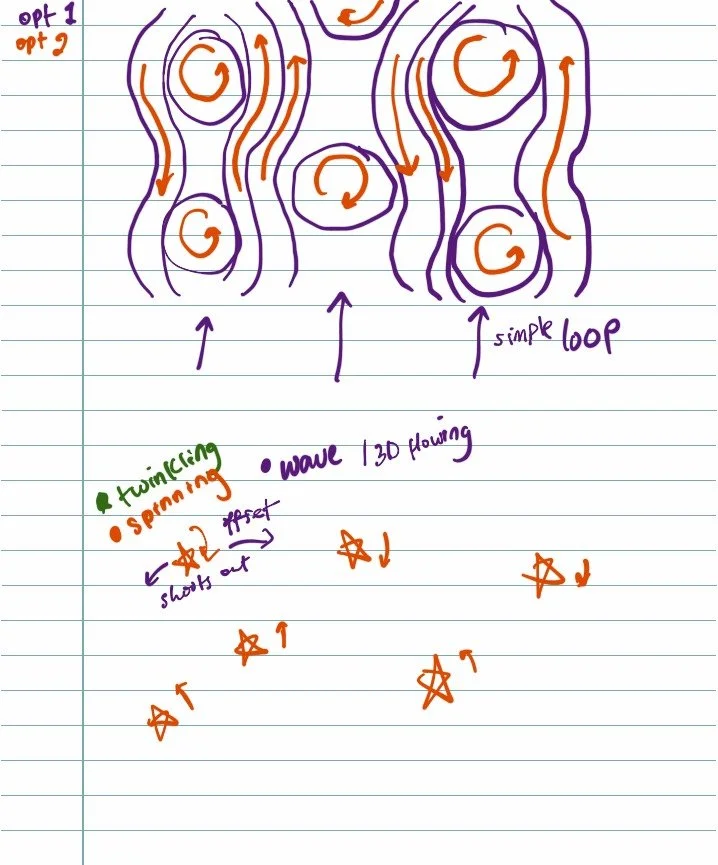 opt 1
opt 2
simple loop
• twinkling
• spinning
• wave / 3D flowing
offset
shoots out